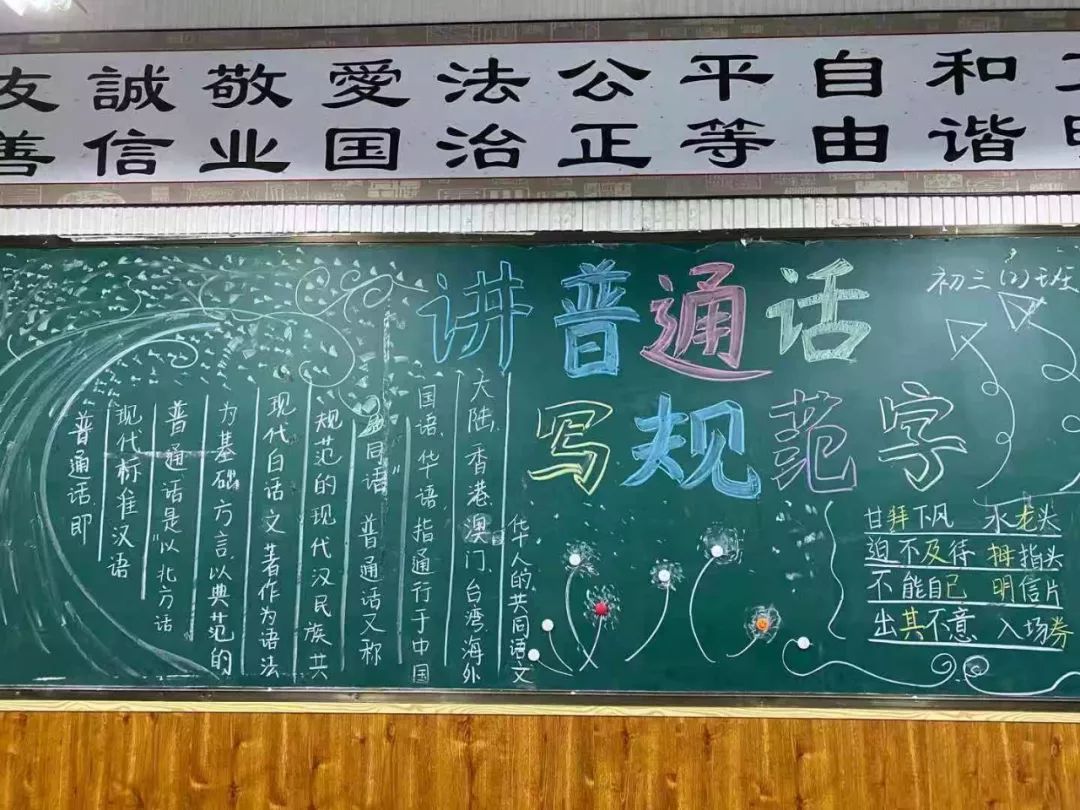 和谐
自由
平等
公正
法治
愛国
敬业
誠信
友善
讲普通话
写规范字
初三(2)班
普通话即
现代标准汉语
普通话是“以北方话
为基础方言以典范的
现代白话文著作为语法
规范的现代汉民族共
同语” 普通话又称
国语、华语、指通行于中国
大陆、香港、澳门、台湾、海外
华人的共同语文
甘拜下风 水龙头
迫不及待 拇指头
不能自已 明信片
出其不意 入场券